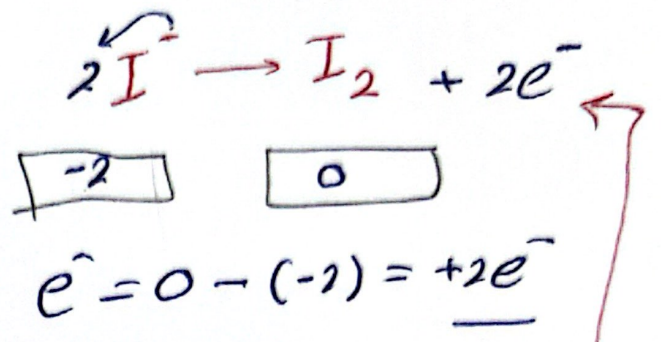 2I⁻ → I₂ + 2e⁻
-2 0
e⁻ = 0 - (-2) = +2e⁻